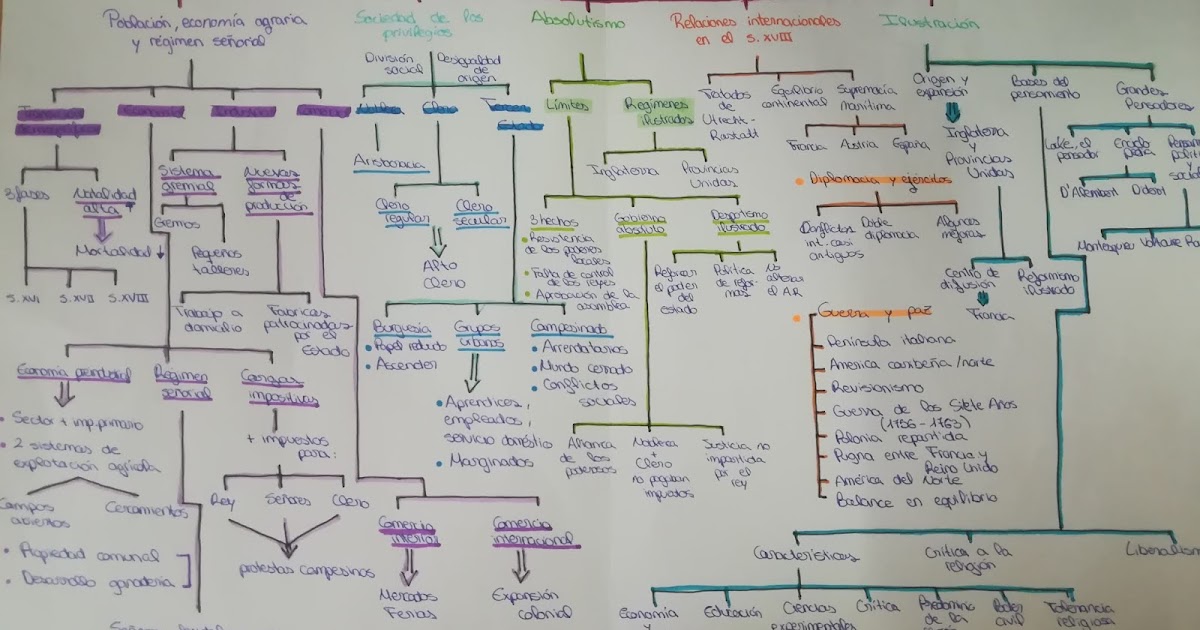 Población, economía agraria
y régimen señorial
Sociedad de los
privilegios
Absolutismo
Relaciones internacionales
en el s. XVIII
Ilustración
Transición
demográfica
Economía
Industria
Comercio
3 fases
Natalidad
alta
Mortalidad
S. XVI
S. XVII
S. XVIII
Sistema
gremial
Gremios
Pequeños
talleres
Nuevas
formas
de
producción
Trabajo a
domicilio
Fábricas
patrocinadas
por el
Estado
Economía
Régimen
señorial
Cargas
impositivas
• Sector + imp. primario
• 2 sistemas de
explotación agrícola
Campos
abiertos
Cerramientos
• Propiedad comunal
• Desarrollo ganadería
+ impuestos
para:
Rey
Señores
Clero
protestas campesinos
Comercio
interior
Mercados
Ferias
Comercio
internacional
Expansión
colonial
División
social
Desigualdad
de
origen
Nobleza
Clero
Tercer
Estado
Aristocracia
Clero
regular
Clero
secular
Alto
Clero
Burguesía
• Papel reducto
• Ascender
Grupos
urbanos
• Aprendices,
empleados,
servicio doméstico
• Marginados
Campesinado
• Arrendatarios
• Mundo cerrado
• Conflictos
sociales
Límites
Regímenes
ilustrados
Inglaterra
Provincias
Unidas
3 hechos
• Resistencia
de los poderes
locales
• Falta de control
de los reyes
• Aprobación de la
asamblea
Gobierno
absoluto
Despotismo
ilustrado
Reforzar
el poder
del
estado
Política
de refor-
mas
No
alterar
el A.R
Alianza
de los
poderosos
Nobleza
+
Clero
no pagaban
impuestos
Justicia no
impartida
por el
rey
Tratados
de
Utrecht-
Rastatt
Equilibrio
continental
Supremacía
marítima
Francia
Austria
España
• Diplomacia y ejércitos
Conflictos
int. casi
antiguos
Doble
diplomacia
Algunas
mejoras
• Guerra y paz
Península italiana
América caribeña/norte
Revisionismo
Guerra de los Siete Años
(1756-1763)
Polonia repartida
Pugna entre Francia y
Reino Unido
América del Norte
Balance en equilibrio
Origen y
expansión
Inglaterra
y
Provincias
Unidas
Centro de
difusión
Francia
Reformismo
ilustrado
Bases del
pensamiento
Grandes
Pensadores
Loke, el
pensador
Enciclo
pedia
Pensam
polític
y
social
D'Alembert
Diderot
Montesquieu
Voltaire
Características
Crítica a la
religión
Liberalism
Economía
y
Educación
Ciencias
experimentales
Crítica
Predominio
de la
Poder
civil
Tolerancia
religiosa